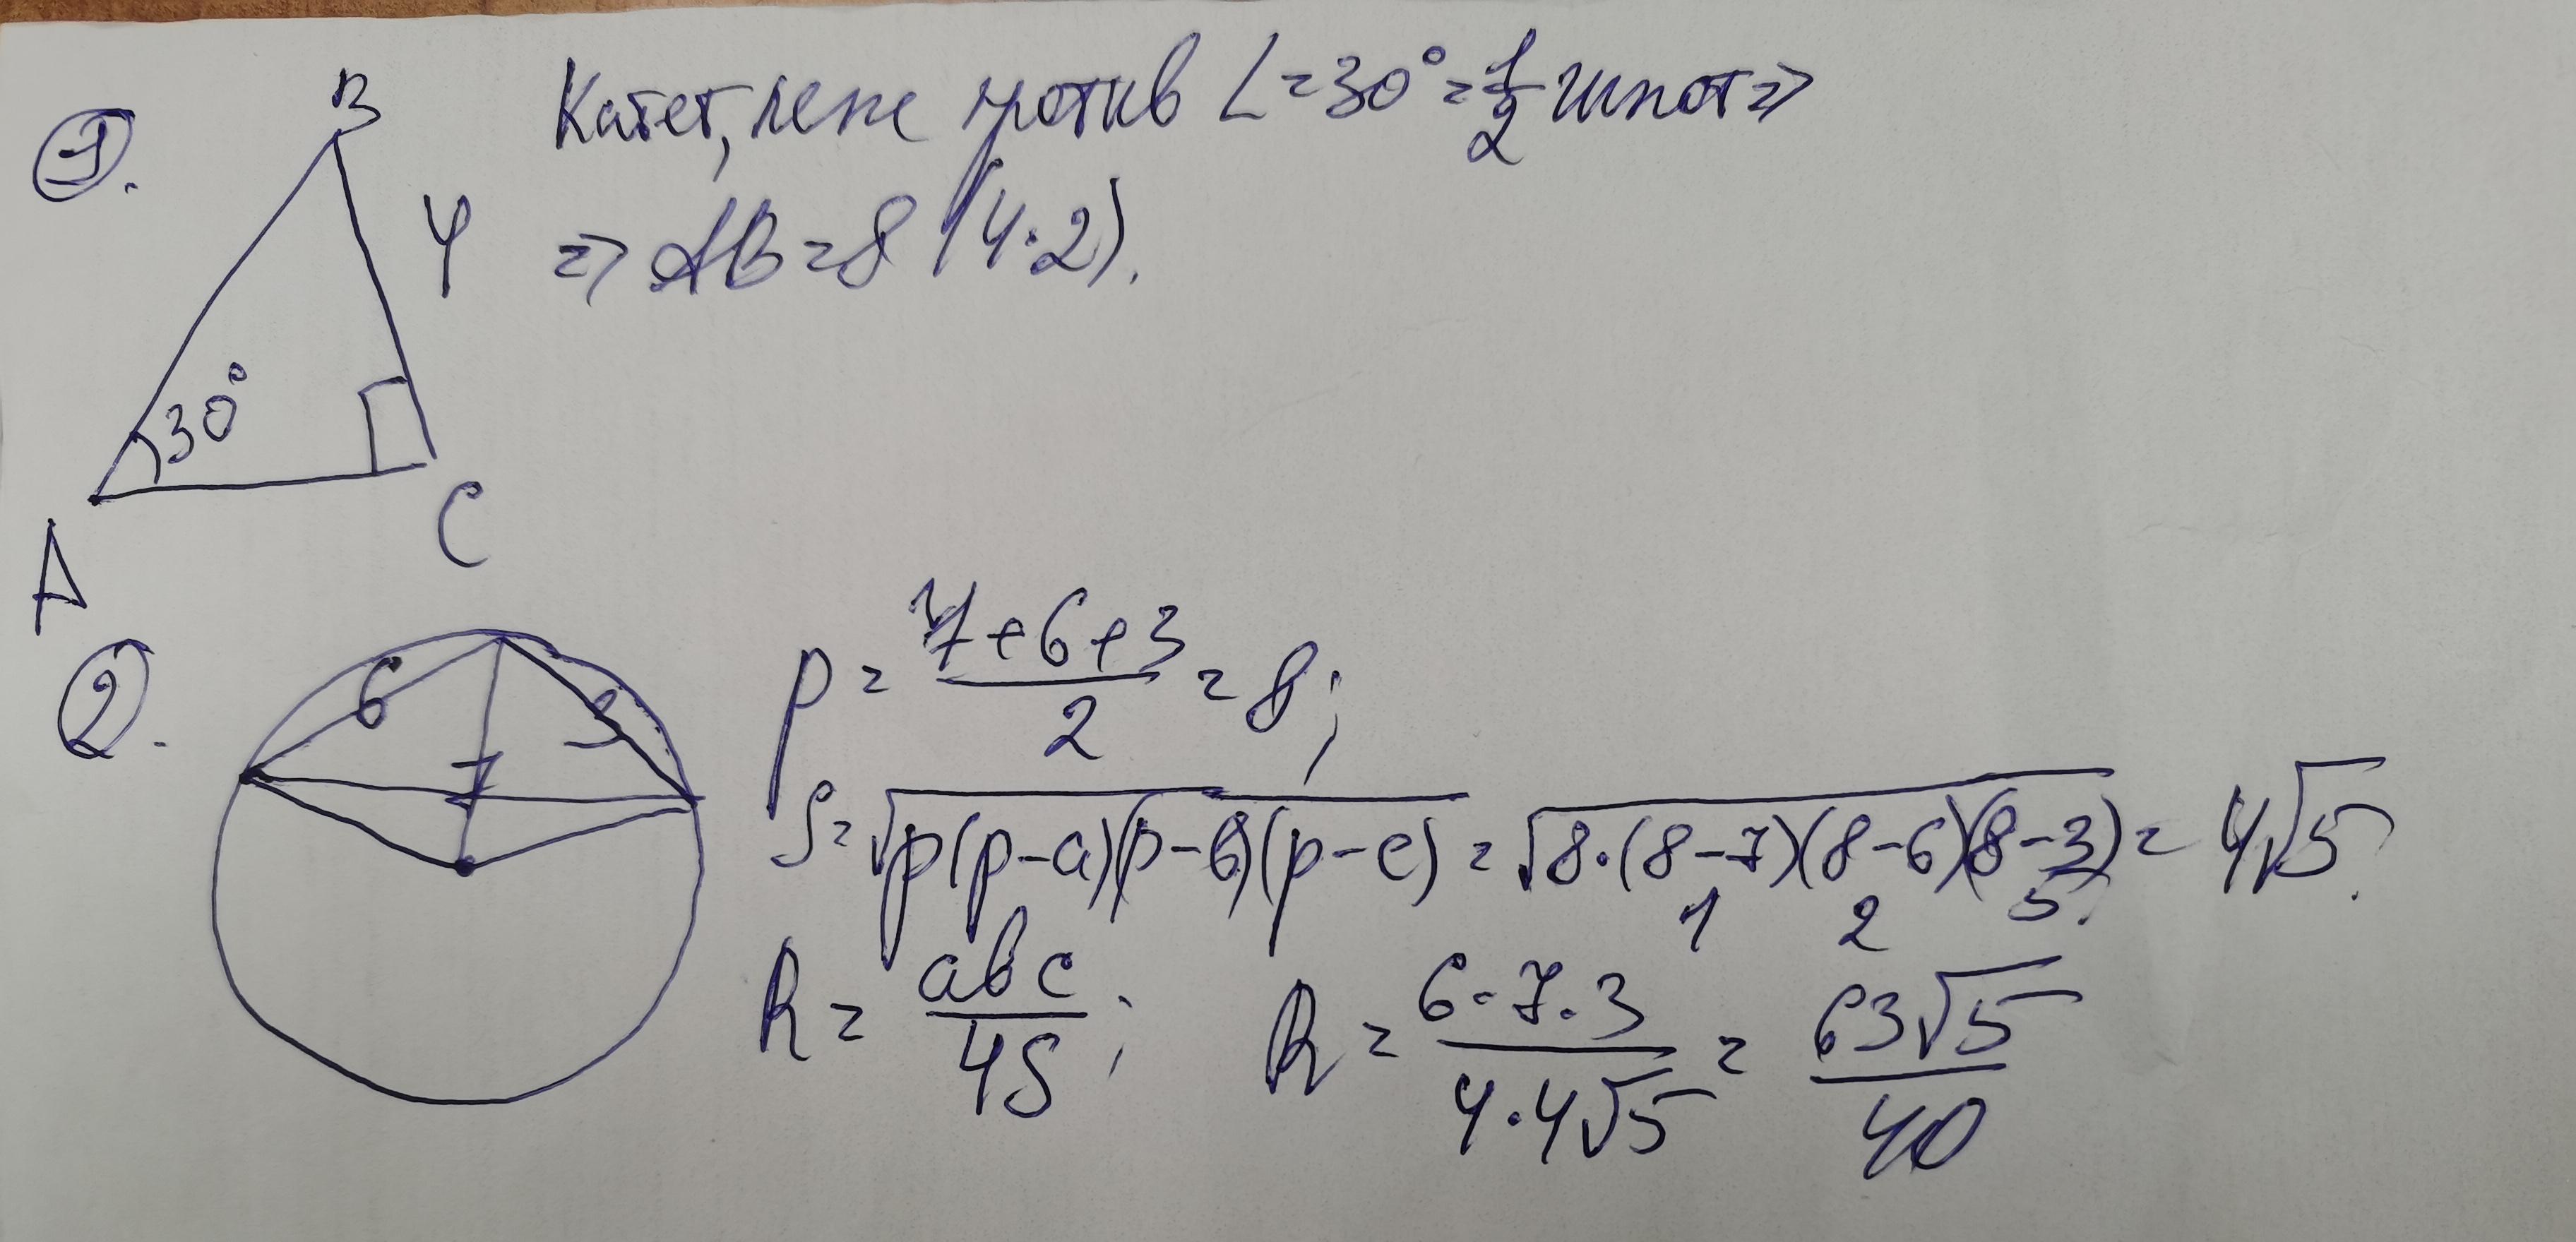 1.
B
Катет, леж против ∠=30°=1/2 гипот⇒
4
⇒ AB=8 (4·2).
30°
C
A
2.
6
3
7
p = (7+6+3)/2 = 8;
S=√(p(p-a)(p-b)(p-c)) = √(8·(8-7)(8-6)(8-3)) = 4√5.
1 2 5
R = abc/4S; R = 6·7·3/4·4√5 = 63√5/40